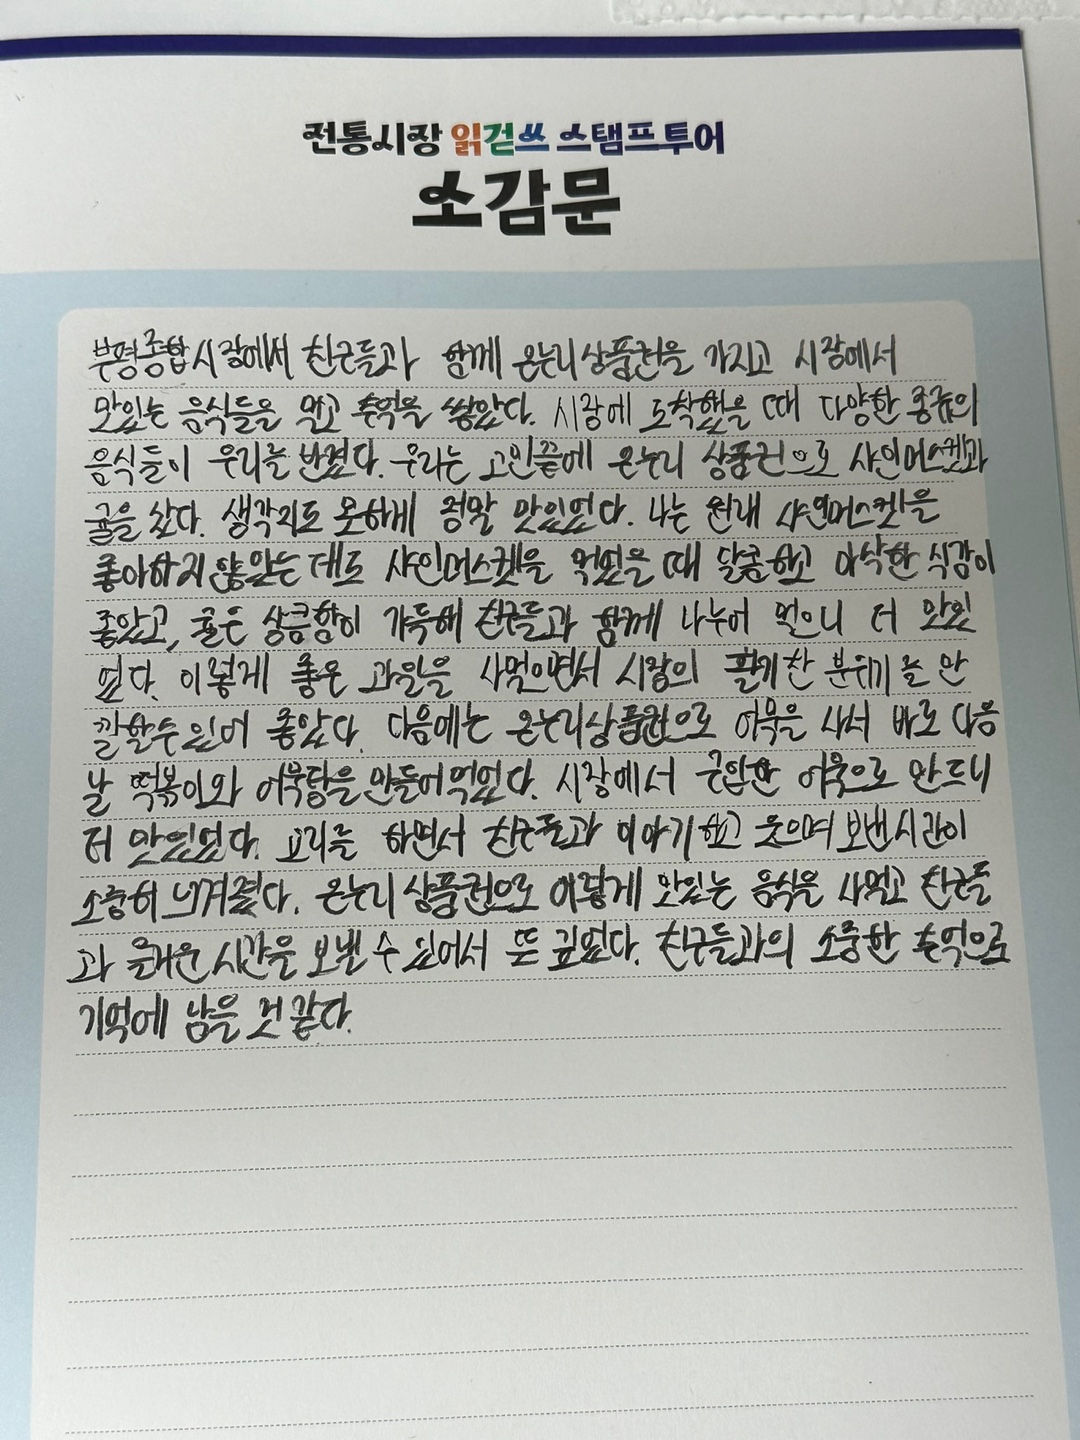 전통시장 읽걷쓰 스탬프투어
소감문
부평종합시장에서 친구들과 함께 온누리상품권을 가지고 시장에서
맛있는 음식들을 먹고 추억을 쌓았다. 시장에 도착했을 때 다양한 종류의
음식들이 우리를 반겼다. 우리는 고민끝에 온누리 상품권으로 샤인머스켓과
귤을 샀다. 생각지도 못하게 정말 맛있었다. 나는 원래 샤인머스켓을
좋아하지 않았는데도 샤인머스켓을 먹었을 때 달콤하고 아삭한 식감이
좋았고, 귤은 상큼함이 가득해 친구들과 함께 나누어 먹으니 더 맛있
었다. 이렇게 좋은 과일을 사먹으면서 시장의 활기찬 분위기를 만
끽할수 있어 좋았다. 다음에는 온누리상품권으로 어묵을 사서 바로 다음
날 떡볶이와 어묵탕을 만들어 먹었다. 시장에서 구입한 어묵으로 만드니
더 맛있었다. 요리를 하면서 친구들과 이야기하고 웃으며 보낸시간이
소중히 느껴졌다. 온누리 상품권으로 이렇게 맛있는 음식을 사먹고 친구들
과 즐거운 시간을 보낼 수 있어서 뜻 깊었다. 친구들과의 소중한 추억으로
기억에 남을 것 같다.